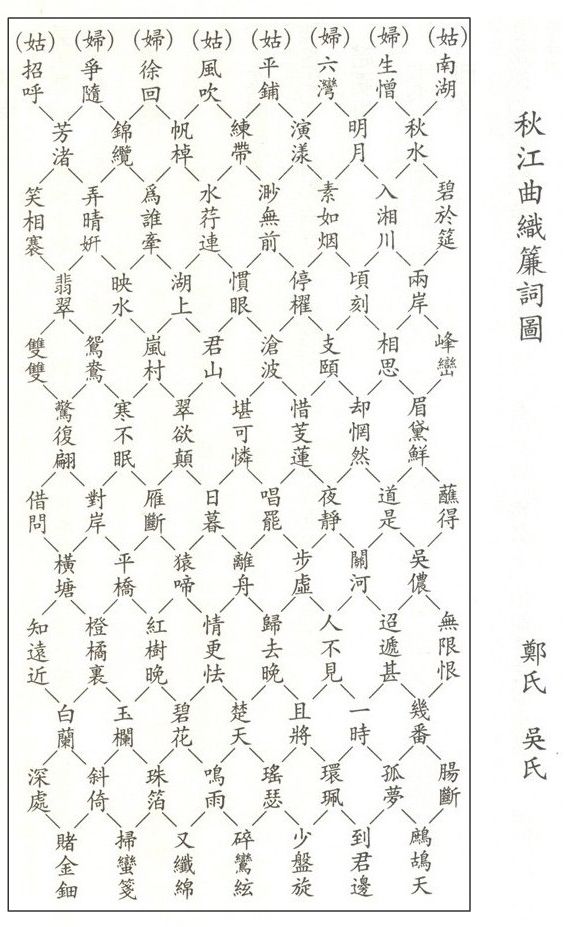 秋江曲織簾詞圖
鄭氏 吳氏
(姑)南湖 (婦)生憎 (婦)六灣 (姑)平鋪 (姑)風吹 (婦)徐回 (婦)爭隨 (姑)招呼
秋水 明月 演漾 練帶 帆棹 錦纜 芳渚
碧於筵 入湘川 素如烟 渺無前 水荇連 爲誰牽 弄晴妍 笑相褰
兩岸 頃刻 停櫂 慣眼 湖上 映水 翡翠
峰巒 相思 支頤 滄波 君山 嵐村 鴛鴦 雙雙
眉黛鮮 却惘然 惜芰蓮 堪可憐 翠欲顛 寒不眠 驚復翩
蘸得 道是 夜靜 唱罷 日暮 雁斷 對岸 借問
吳儂 關河 步虛 離舟 猿啼 平橋 橫塘
無限恨 迢遞甚 人不見 歸去晚 情更怯 紅樹晚 橙橘裏 知遠近
幾番 一時 且將 楚天 碧花 玉欄 白蘭
腸斷 孤夢 環珮 瑤瑟 鳴雨 珠箔 斜倚 深處
鷓鴣天 到君邊 少盤旋 碎鸞絃 又纖綿 掃蠻箋 賭金鈿